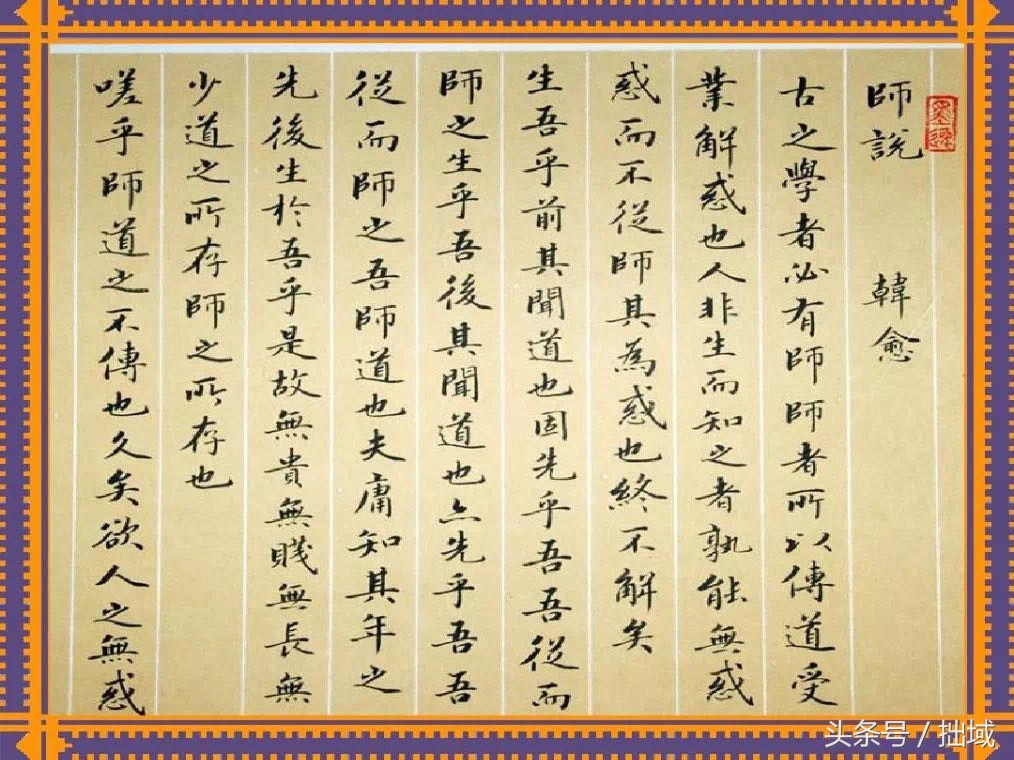 師說 韓愈
古之學者必有師師者所以傳道受
業解惑也人非生而知之者孰能無惑
惑而不從師其為惑也終不解矣
生吾乎前其聞道也固先乎吾吾從而
師之生乎吾後其聞道也亦先乎吾吾
從而師之吾師道也夫庸知其年之
先後生於吾乎是故無貴無賤無長無
少道之所存師之所存也
嗟乎師道之不傳也久矣欲人之無惑
头条号 / 拙域